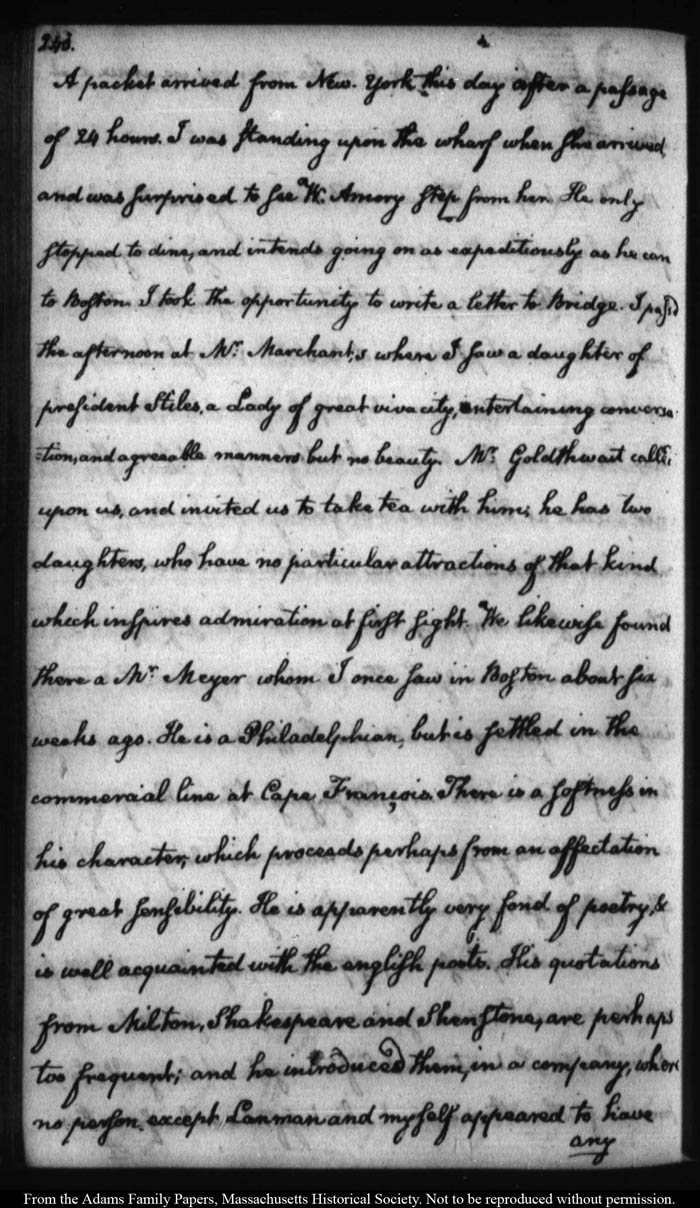 240.
A packet arrived from New-York this day after a passage
of 24 hours. I was standing upon the wharf when she arrived,
and was surprised to see W. Amory step from her. He only
stopped to dine, and intends going on as expeditiously as he can
to Boston. I took the opportunity to write a letter to Bridge. I pass'd
the afternoon at Mr. Marchant's where I saw a daughter of
president Stiles, a Lady of great vivacity, entertaining conversa-
=tion, and agreeable manners but no beauty. Mr. Goldthwait call'd
upon us, and invited us to take tea with him; he has two
daughters, who have no particular attractions of that kind
which inspires admiration at first sight. We likewise found
there a Mr. Meyer whom I once saw in Boston about six
weeks ago. He is a Philadelphian, but is settled in the
commercial line at Cape François. There is a softness in
his character, which proceeds perhaps from an affectation
of great sensibility. He is apparently very fond of poetry, &
is well acquainted with the english poets. His quotations
from Milton, Shakespeare and Shenstone, are perhaps
too frequent; and he introduced them, in a company, where
no person except Lanman and myself appeared to have
any
From the Adams Family Papers, Massachusetts Historical Society. Not to be reproduced without permission.